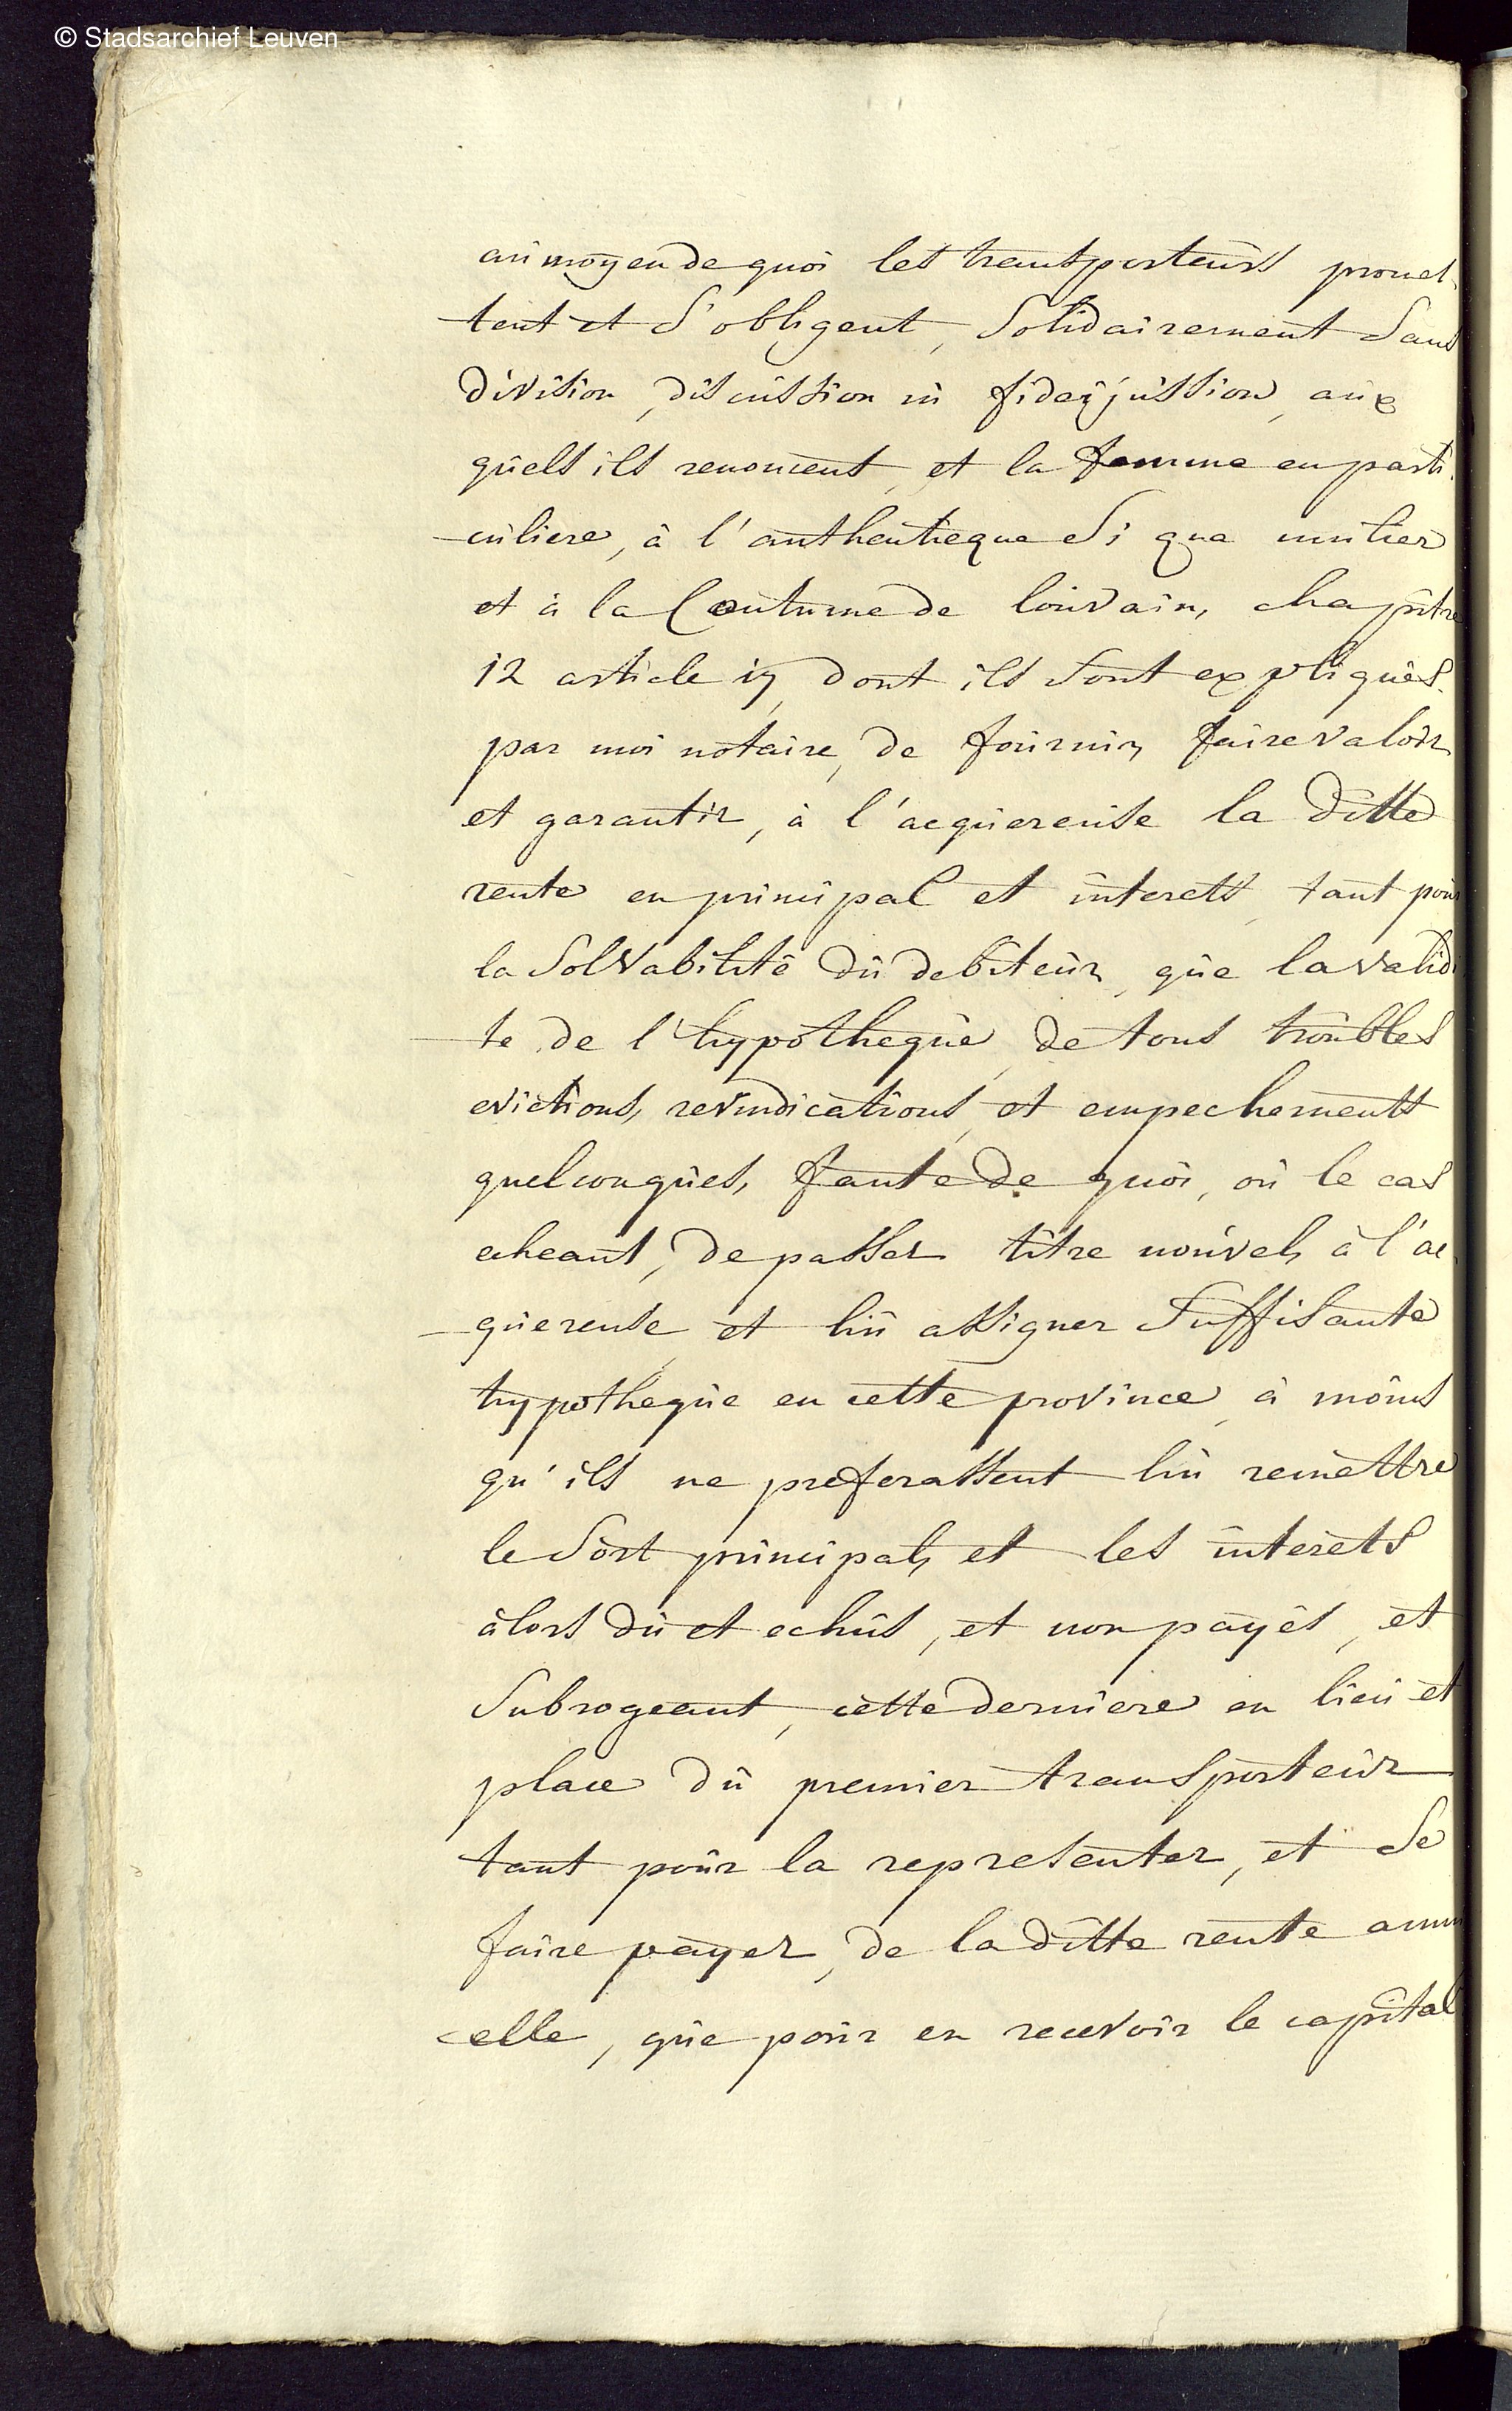 © Stadsarchief Leuven
au moyen de quoi les transporteurs promet
tent et s'obligent, solidairement sans
division, discussion ni fideijussion, aux
quels ils renoncent, et la femme en parti
culiere, à l'authentique si qua mulier
et à la Coutume de louvain, chapitre
12 article dont ils sont expliqués
par moi notaire, de fournir, faire valoir
et garantir, à l'acquereuse la ditte
rente en principal et interets, tant pour
la solvabilité du debiteur, que la validi
te de l'hypotheque, de tous troubles
evictions, revindications, et empechements
quelconques, faute de quoi, ou le cas
echeant, de passer titre nouvel, à l'ac
quereuse, et lui assigner suffisante
hypotheque en cette province, à moins
qu'ils ne preferassent lui remettre
le sort principal, et les interets
alors du et echus, et non payés, et
subrogeant, cette derniere en lieu et
place du premier transporteur
tant pour la representer, et se
faire payer, de la ditte rente annu
elle, que pour en recevoir le capital